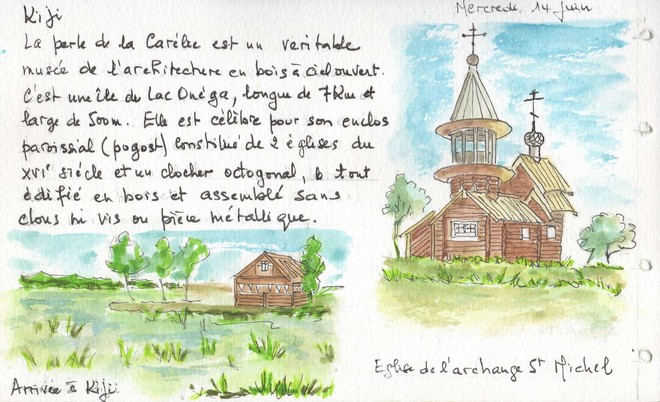 Kiji
Mercredi 14 juin
La perle de la Carélie est un veritable
musée de l'architecture en bois à ciel ouvert.
C'est une île du Lac Onéga, longue de 7km et
large de 500m. Elle est célèbre pour son enclos
paroissial (pogost) constitué de 2 églises du
XVIe siècle et un clocher octogonal, le tout
édifié en bois et assemblé sans
clous ni vis ou pièce métallique.
Arrivée à Kiji
Eglise de l'archange St Michel